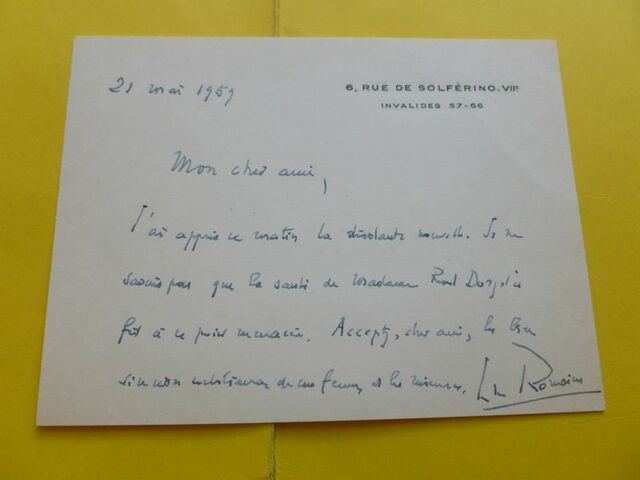 21 mai 1959
6, RUE DE SOLFÉRINO. VIIe
INVALIDES 57-66
Mon cher ami,
J'ai appris ce matin la désolante nouvelle. Je ne
savais pas que la santé de Madame Roland Dorgelès
fût à ce point menacée. Acceptez, cher ami, les très
sincères condoléances de ma femme et les miennes. Jules Romains